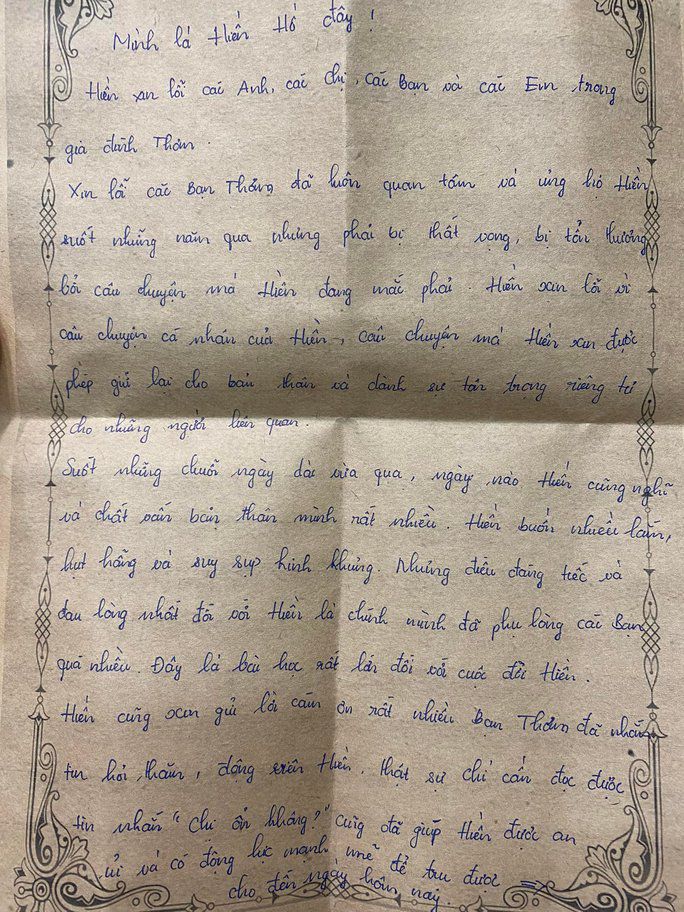 Mình là Hiền Hồ đây!
Hiền xin lỗi các Anh, các chị, các Bạn và các Em trong
gia đình Thơm.
Xin lỗi các Bạn Thơm đã luôn quan tâm và ủng hộ Hiền
suốt những năm qua nhưng phải bị thất vọng, bị tổn thương
bởi câu chuyện mà Hiền đang mắc phải. Hiền xin lỗi vì
câu chuyện cá nhân của Hiền, câu chuyện mà Hiền xin được
phép giữ lại cho bản thân và dành sự tôn trọng riêng tư
cho những người liên quan.
Suốt những chuỗi ngày dài vừa qua, ngày nào Hiền cũng nghĩ
và chất vấn bản thân mình rất nhiều. Hiền buồn nhiều lắm,
hụt hẫng và suy sụp kinh khủng. Nhưng điều đáng tiếc và
đau lòng nhất đối với Hiền là chính mình đã phụ lòng các Bạn
quá nhiều. Đây là bài học rất lớn đối với cuộc đời Hiền.
Hiền cũng xin gửi lời cảm ơn rất nhiều Bạn Thơm đã nhắn
tin hỏi thăm, động viên Hiền, thật sự chỉ cần đọc được
tin nhắn "Chị ổn không?" cũng đã giúp Hiền được an
ủi và có động lực mạnh mẽ để trụ được
cho đến ngày hôm nay.